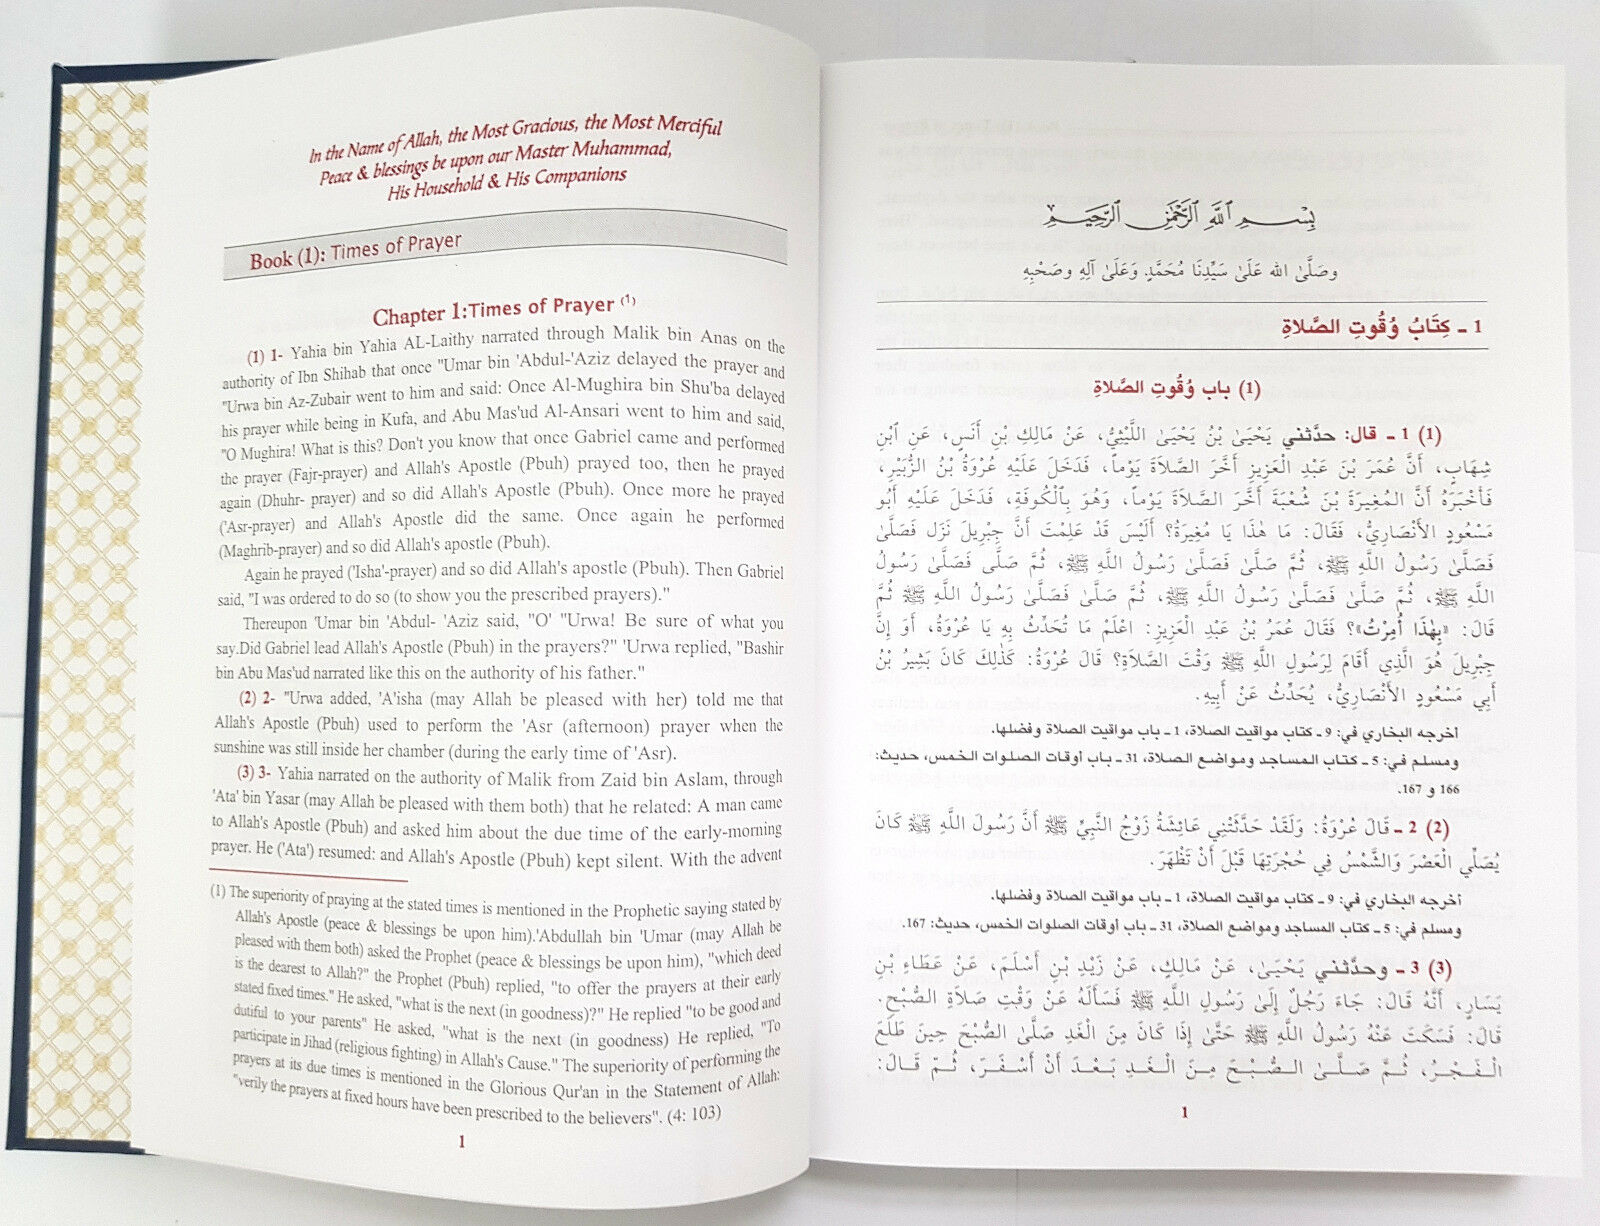 In the Name of Allah, the Most Gracious, the Most Merciful
Peace & blessings be upon our Master Muhammad,
His Household & His Companions
Book (1): Times of Prayer
Chapter 1:Times of Prayer (1)
(1) 1- Yahia bin Yahia AL-Laithy narrated through Malik bin Anas on the
authority of Ibn Shihab that once "Umar bin 'Abdul-'Aziz delayed the prayer and
"Urwa bin Az-Zubair went to him and said: Once Al-Mughira bin Shu'ba delayed
his prayer while being in Kufa, and Abu Mas'ud Al-Ansari went to him and said,
"O Mughira! What is this? Don't you know that once Gabriel came and performed
the prayer (Fajr-prayer) and Allah's Apostle (Pbuh) prayed too, then he prayed
again (Dhuhr- prayer) and so did Allah's Apostle (Pbuh). Once more he prayed
('Asr-prayer) and Allah's Apostle did the same. Once again he performed
(Maghrib-prayer) and so did Allah's apostle (Pbuh).
Again he prayed ('Isha'-prayer) and so did Allah's apostle (Pbuh). Then Gabriel
said, "I was ordered to do so (to show you the prescribed prayers)."
Thereupon 'Umar bin 'Abdul- 'Aziz said, "O' "Urwa! Be sure of what you
say.Did Gabriel lead Allah's Apostle (Pbuh) in the prayers?" 'Urwa replied, "Bashir
bin Abu Mas'ud narrated like this on the authority of his father."
(2) 2- "Urwa added, 'A'isha (may Allah be pleased with her) told me that
Allah's Apostle (Pbuh) used to perform the 'Asr (afternoon) prayer when the
sunshine was still inside her chamber (during the early time of 'Asr).
(3) 3- Yahia narrated on the authority of Malik from Zaid bin Aslam, through
'Ata' bin Yasar (may Allah be pleased with them both) that he related: A man came
to Allah's Apostle (Pbuh) and asked him about the due time of the early-morning
prayer. He ('Ata') resumed: and Allah's Apostle (Pbuh) kept silent. With the advent
(1) The superiority of praying at the stated times is mentioned in the Prophetic saying stated by
Allah's Apostle (peace & blessings be upon him).'Abdullah bin 'Umar (may Allah be
pleased with them both) asked the Prophet (peace & blessings be upon him), "which deed
is the dearest to Allah?" the Prophet (Pbuh) replied, "to offer the prayers at their early
stated fixed times." He asked, "what is the next (in goodness)?" He replied "to be good and
dutiful to your parents" He asked, "what is the next (in goodness) He replied, "To
participate in Jihad (religious fighting) in Allah's Cause." The superiority of performing the
prayers at its due times is mentioned in the Glorious Qur'an in the Statement of Allah:
"verily the prayers at fixed hours have been prescribed to the believers". (4: 103)
1
بِسْمِ ٱللَّهِ ٱلرَّحْمَٰنِ ٱلرَّحِيمِ
وصَلَّىٰ الله عَلَىٰ سَيِّدِنَا مُحَمَّدٍ وَعَلَىٰ آلِهِ وصَحْبِهِ
1 ـ كِتَابُ وُقُوتِ الصَّلاةِ
(1) باب وُقُوتِ الصَّلاةِ
(1) 1 ـ قال: حدَّثني يَحْيَىٰ بْنُ يَحْيَىٰ اللَّيْثِيُّ، عَنْ مَالِكِ بْنِ أَنَسٍ، عَنِ ابْنِ
شِهَابٍ، أَنَّ عُمَرَ بْنَ عَبْدِ الْعَزِيزِ أَخَّرَ الصَّلاَةَ يَوْماً، فَدَخَلَ عَلَيْهِ عُرْوَةُ بْنُ الزُّبَيْرِ،
فَأَخْبَرَهُ أَنَّ المُغِيرَةَ بْنَ شُعْبَةَ أَخَّرَ الصَّلاَةَ يَوْماً، وَهُوَ بِالْكُوفَةِ، فَدَخَلَ عَلَيْهِ أَبُو
مَسْعُودٍ الأَنْصَارِيُّ، فَقَالَ: مَا هَٰذَا يَا مُغِيرَةُ؟ أَلَيْسَ قَدْ عَلِمْتَ أَنَّ جِبْرِيلَ نَزَلَ فَصَلَّىٰ
فَصَلَّىٰ رَسُولُ اللَّهِ ﷺ، ثُمَّ صَلَّىٰ فَصَلَّىٰ رَسُولُ اللَّهِ ﷺ، ثُمَّ صَلَّى فَصَلَّىٰ رَسُولُ
اللَّهِ ﷺ، ثُمَّ صَلَّىٰ فَصَلَّىٰ رَسُولُ اللَّهِ ﷺ، ثُمَّ صَلَّىٰ فَصَلَّىٰ رَسُولُ اللَّهِ ﷺ ثُمَّ
قَالَ: «بِهَٰذَا أُمِرْتُ»؟ فَقَالَ عُمَرُ بْنُ عَبْدِ الْعَزِيزِ: اعْلَمْ مَا تُحَدِّثُ بِهِ يَا عُرْوَةُ، أَوَ إِنَّ
جِبْرِيلَ هُوَ الَّذِي أَقَامَ لِرَسُولِ اللَّهِ ﷺ وَقْتَ الصَّلاَةِ؟ قَالَ عُرْوَةُ: كَذَٰلِكَ كَانَ بَشِيرُ بْنُ
أَبِي مَسْعُودٍ الأَنْصَارِيُّ، يُحَدِّثُ عَنْ أَبِيهِ.
أخرجه البخاري في: 9 ـ كتاب مواقيت الصلاة، 1 ـ باب مواقيت الصلاة وفضلها.
ومسلم في: 5 ـ كتاب المساجد ومواضع الصلاة، 31 ـ باب أوقات الصلوات الخمس، حديث:
166 و 167.
(2) 2 ـ قَالَ عُرْوَةُ: وَلَقَدْ حَدَّثَتْنِي عَائِشَةُ زَوْجُ النَّبِيِّ ﷺ أَنَّ رَسُولَ اللَّهِ ﷺ كَانَ
يُصَلِّي الْعَصْرَ وَالشَّمْسُ فِي حُجْرَتِهَا قَبْلَ أَنْ تَظْهَرَ.
أخرجه البخاري في: 9 ـ كتاب مواقيت الصلاة، 1 ـ باب مواقيت الصلاة وفضلها.
ومسلم في: 5 ـ كتاب المساجد ومواضع الصلاة، 31 ـ باب أوقات الصلوات الخمس، حديث: 167.
(3) 3 ـ وحدَّثني يَحْيَىٰ، عَنْ مَالِكٍ، عَنْ زَيْدِ بْنِ أَسْلَمَ، عَنْ عَطَاءِ بْنِ
يَسَارٍ، أَنَّهُ قَالَ: جَاءَ رَجُلٌ إِلَىٰ رَسُولِ اللَّهِ ﷺ فَسَأَلَهُ عَنْ وَقْتِ صَلاَةِ الصُّبْحِ.
قَالَ: فَسَكَتَ عَنْهُ رَسُولُ اللَّهِ ﷺ حَتَّىٰ إِذَا كَانَ مِنَ الْغَدِ صَلَّىٰ الصُّبْحَ حِينَ طَلَعَ
الْفَجْرُ، ثُمَّ صَلَّىٰ الصُّبْحَ مِنَ الْغَدِ بَعْدَ أَنْ أَسْفَرَ، ثُمَّ قَالَ:
1